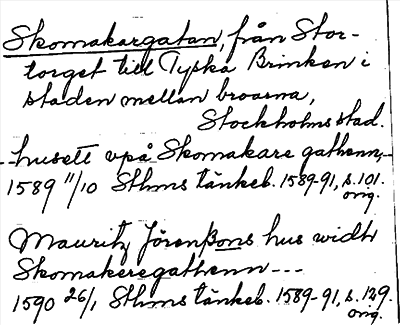 Skomakargatan, från Stor-
torget till Tyska Brinken i
staden mellan broarna,
Stockholms stad.
--husett vpå Skomakare gathenn,--
1589 11/10 Sthms tänkeb. 1589-91, s. 101.
orig.
Mauritz Jörenßons hus widh
Skomakeregathenn ---
1590 26/1 Sthms tänkeb. 1589-91, s. 129.
orig.